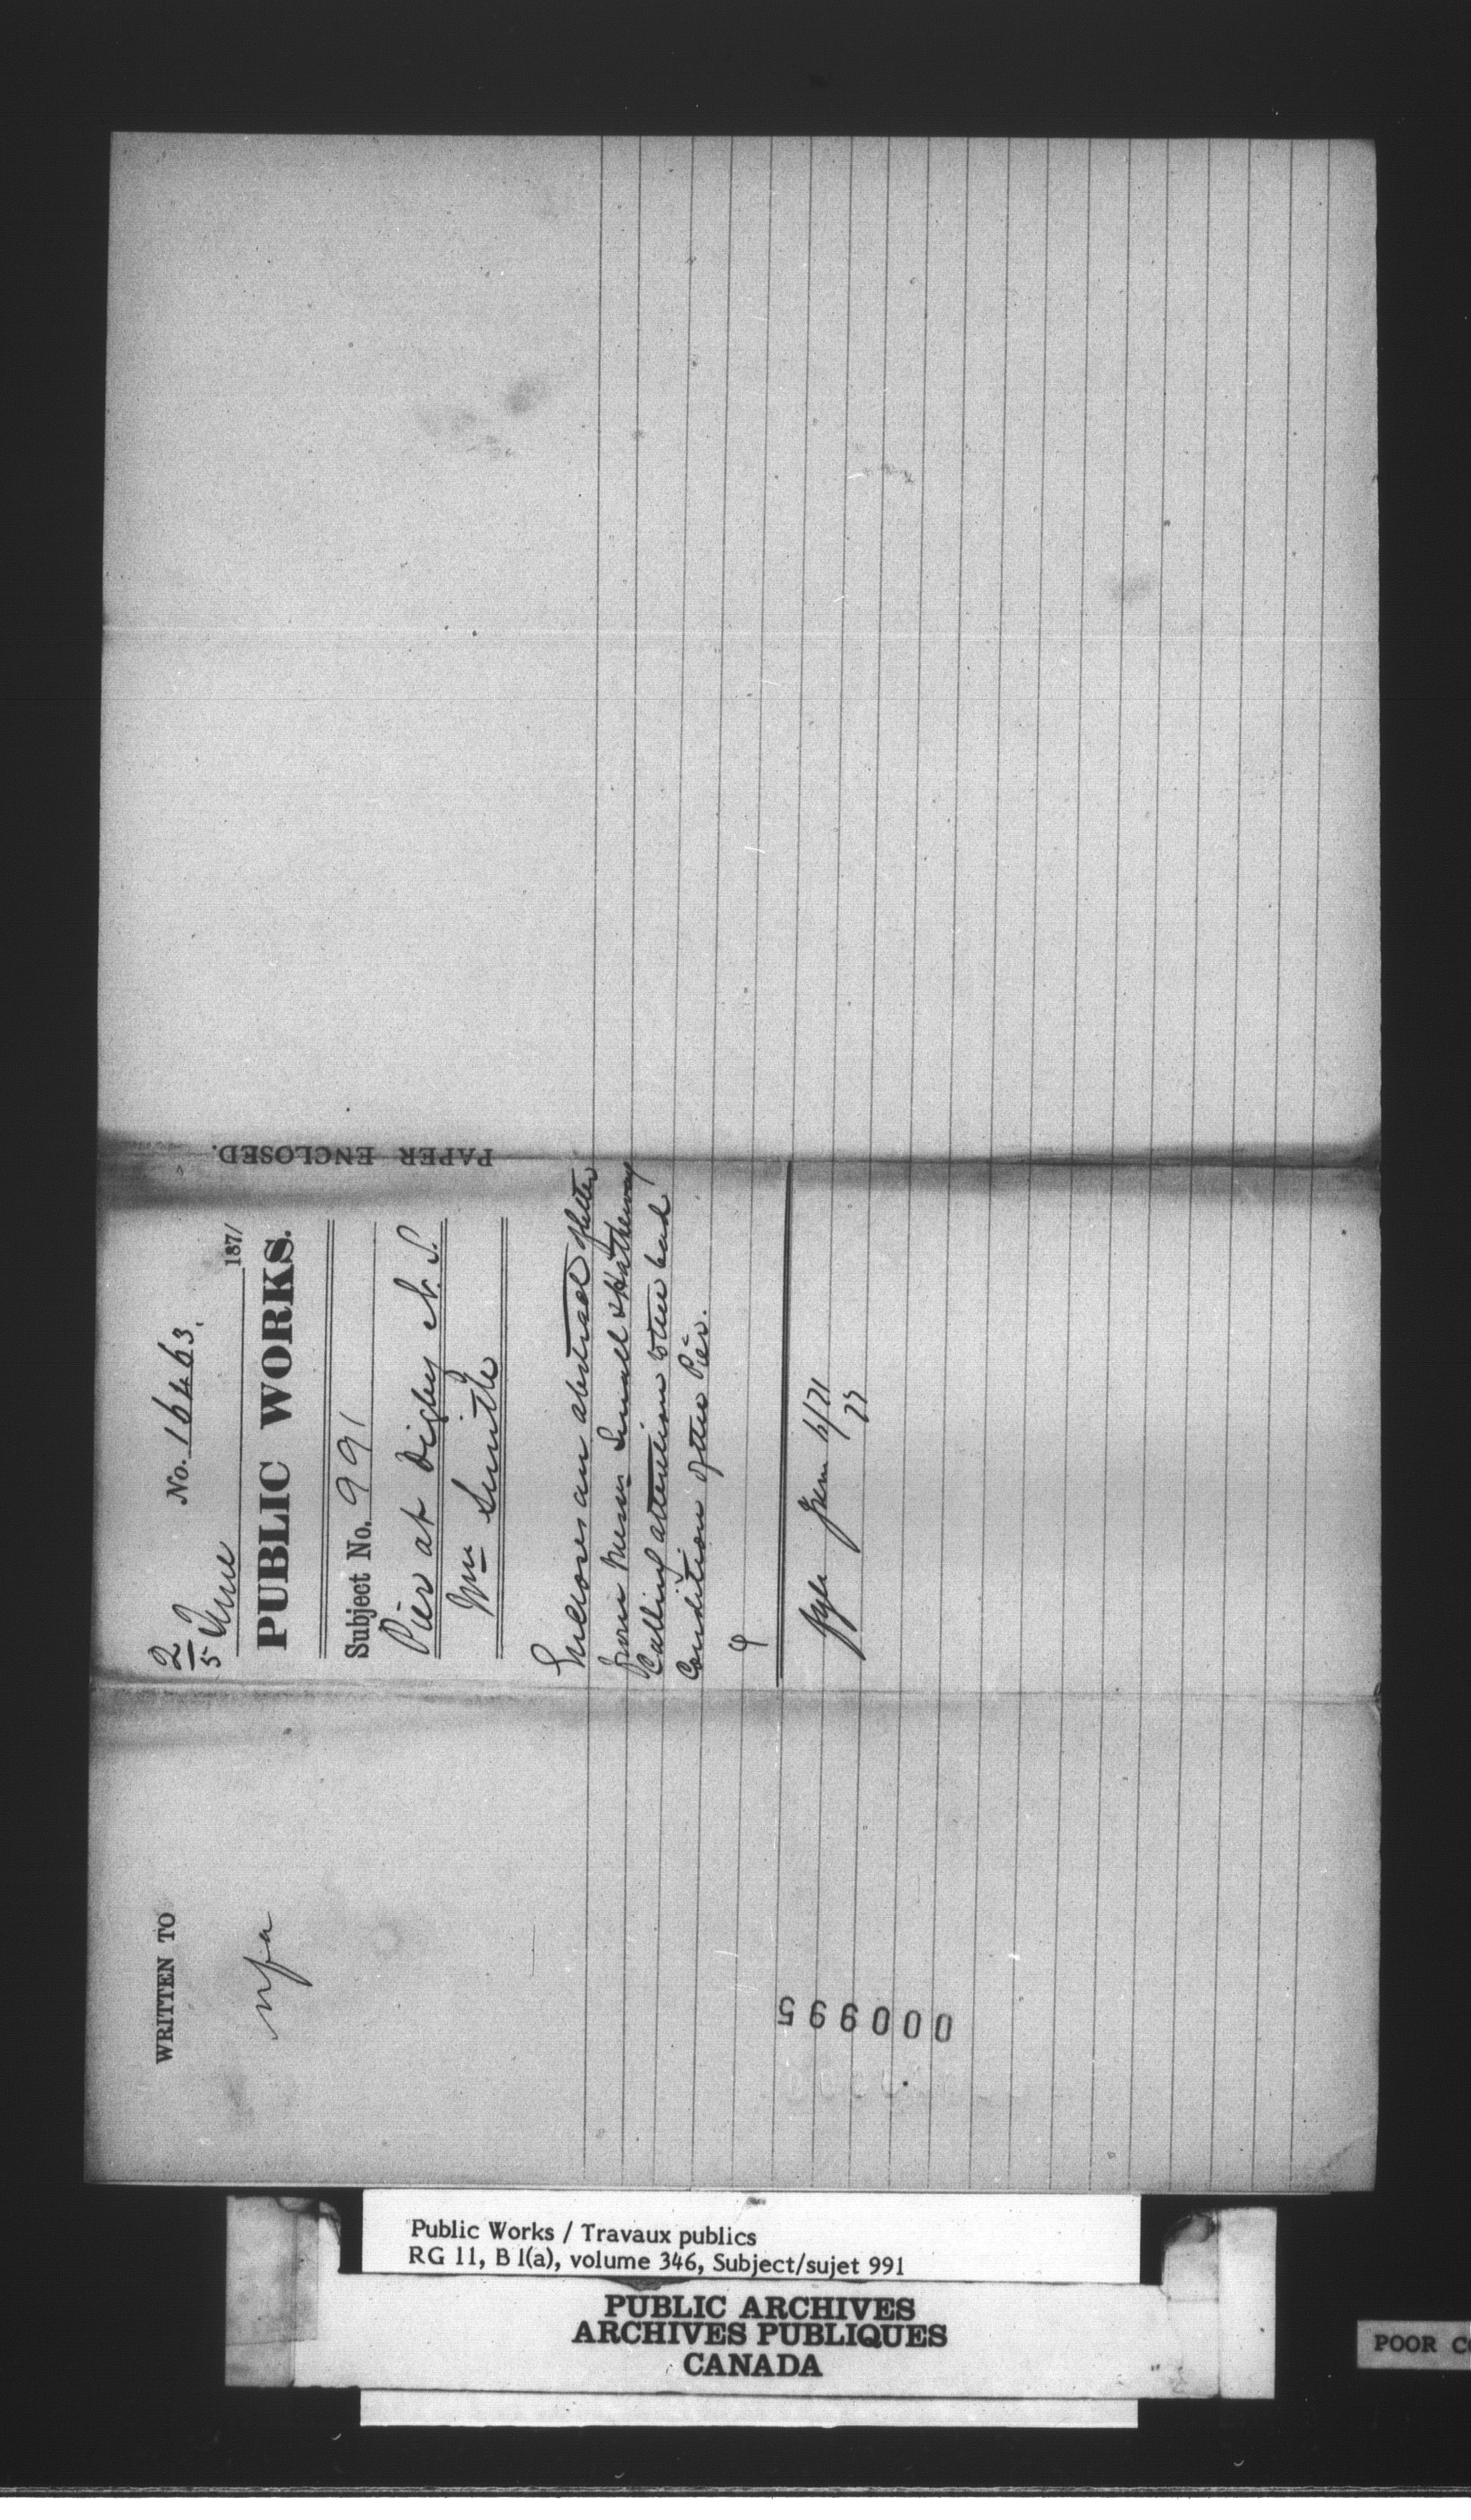 WRITTEN TO
nfa
2/5 June 1871
No. 16463.
PUBLIC WORKS.
Subject No. 991
Pier at Digby N.S.
Wm Smith
Encloses an abstract of letter
from Messrs Small & Hatheway
Calling attention to the bad
condition of the Pier.
PAPER ENCLOSED.
000995
Public Works / Travaux publics
RG 11, B 1(a), volume 346, Subject/sujet 991
PUBLIC ARCHIVES
ARCHIVES PUBLIQUES
CANADA
POOR